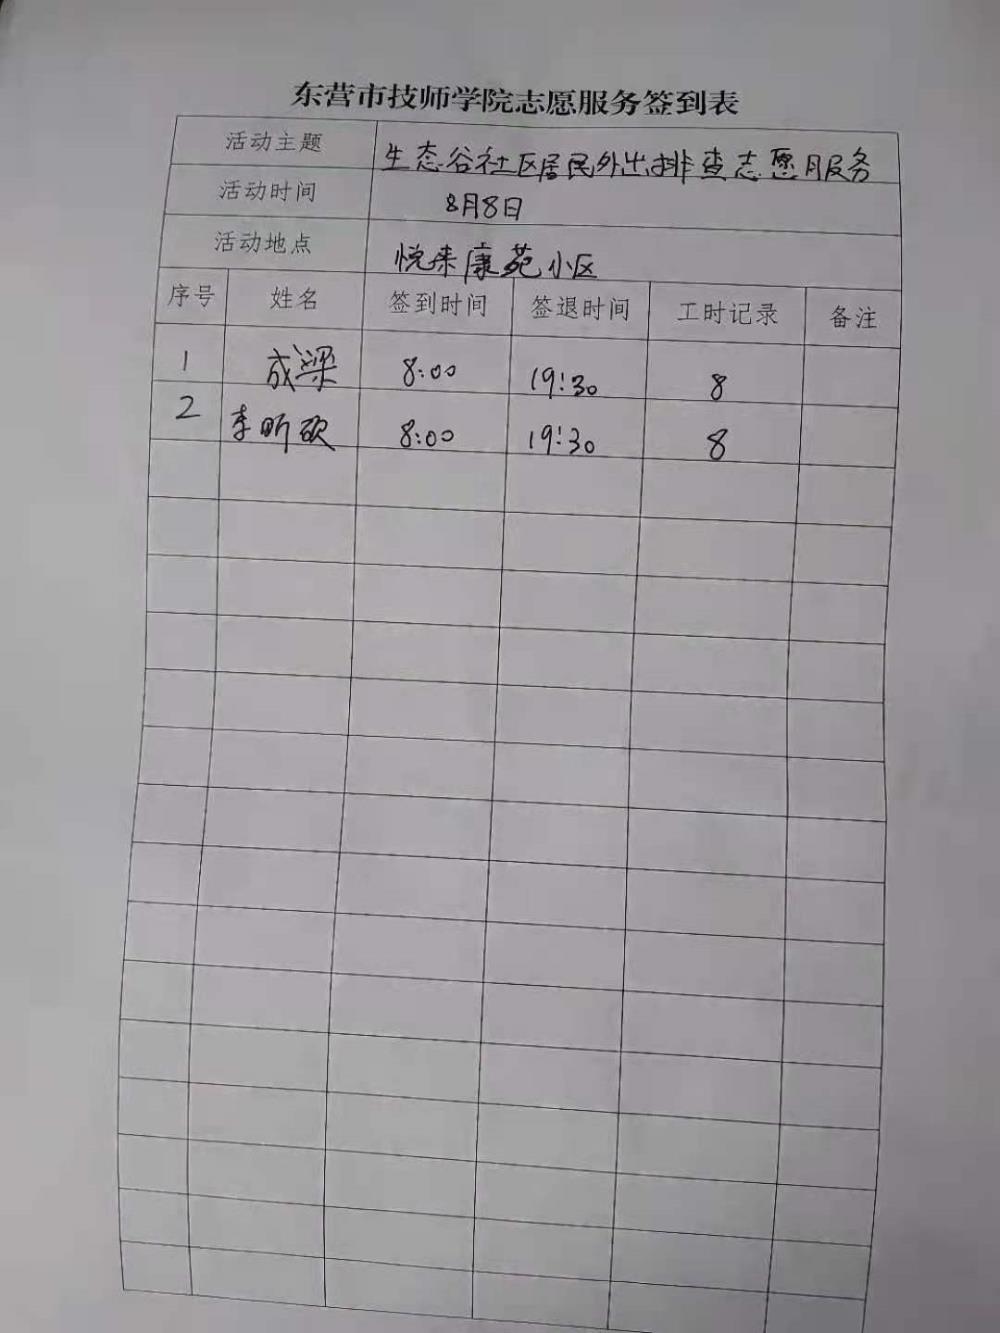 东营市技师学院志愿服务签到表
活动主题 生态谷社区居民外出排查志愿服务
活动时间 8月8日
活动地点 悦来康苑小区
序号 姓名 签到时间 签退时间 工时记录 备注
1 成梁 8:00 19:30 8
2 李昕砍 8:00 19:30 8